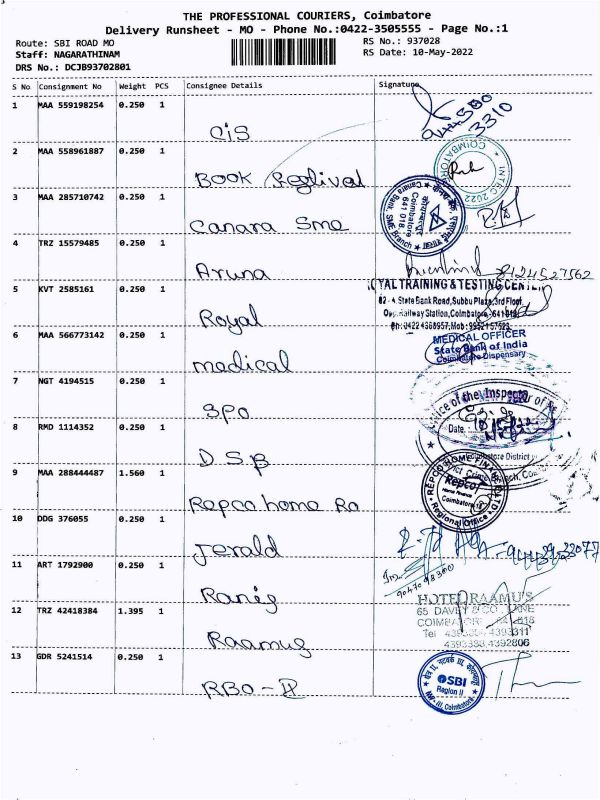 THE PROFESSIONAL COURIERS, Coimbatore
Delivery Runsheet - MO - Phone No.:0422-3505555 - Page No.:1
Route: SBI ROAD MO
RS No.: 937028
Staff: NAGARATHINAM
RS Date: 10-May-2022
DRS No.: DCJB93702801
S No Consignment No Weight PCS Consignee Details Signature
1 MAA 559198254 0.250 1
CIS
3310
2 MAA 558961887 0.250 1
Book
COIMBATORE
INTEC 2022
3 MAA 285710742 0.250 1
Canara Sme
Canara Bank, SME Branch
Coimbatore
641 018
4 TRZ 15579485 0.250 1
Aruna
8124527562
5 KVT 2585161 0.250 1
Royal
ROYAL TRAINING & TESTING CENTER
82-A State Bank Road, Subbu Plaza, 3rd Floor,
Opp. Railway Station, Coimbatore - 641 018
6 MAA 566773142 0.250 1
medical
MEDICAL OFFICER
State Bank of India
Coimbatore Dispensary
7 NGT 4194515 0.250 1
SPO
Office of the Inspector of
Date
8 RMD 1114352 0.250 1
DSP
Coimbatore District
9 MAA 288444487 1.560 1
Repco home Ro
REPCO HOME FINANCE LTD
Repco
Home Finance
Coimbatore
Regional Office
10 DDG 376055 0.250 1
Jerald
11 ART 1792900 0.250 1
12 TRZ 42418384 1.395 1
Raamus
HOTEL RAAMU'S
Tel
4393311
4393383, 4392806
13 GDR 5241514 0.250 1
RBO - II
SBI
Region II
Coimbatore